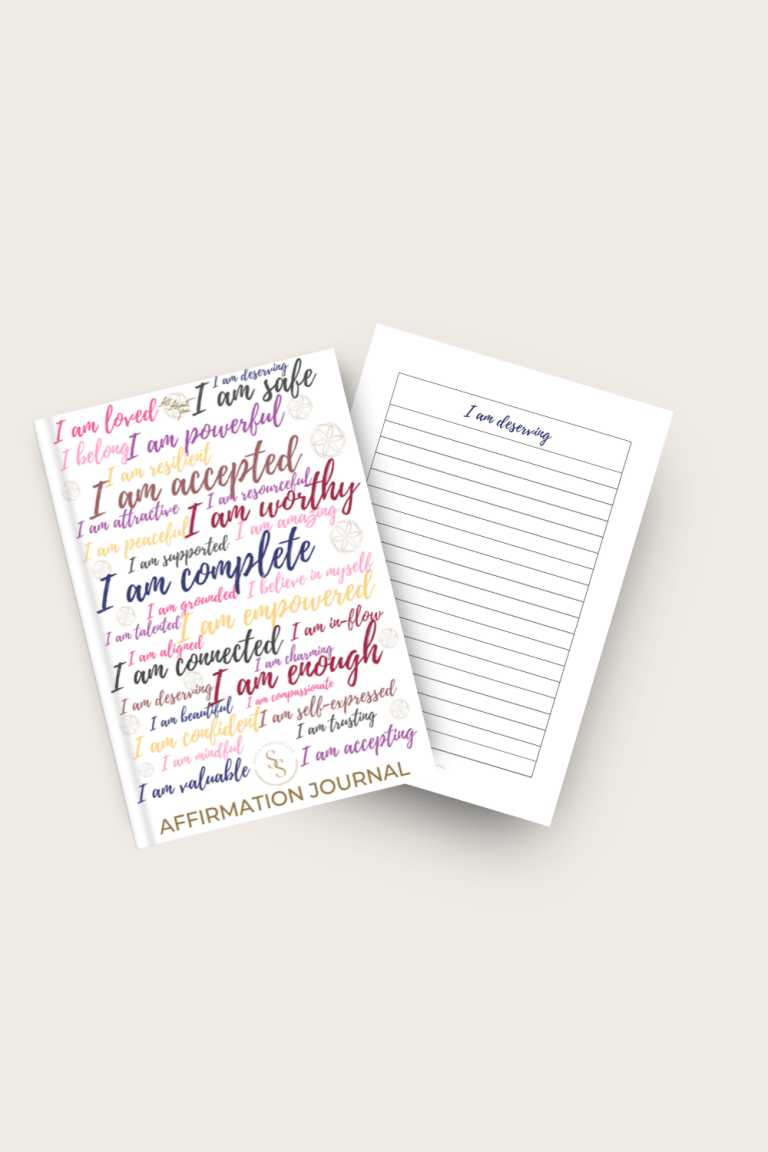 I am deserving
I am loved
I am safe
I belong
I am powerful
I am resilient
I am accepted
I am resourceful
I am attractive
I am worthy
I am peaceful
I am amazing
I am supported
I am complete
I believe in myself
I am grounded
I am empowered
I am talented
I am in-flow
I am aligned
I am connected
I am charming
I am enough
I am deserving
I am compassionate
I am beautiful
I am self-expressed
I am confident
I am trusting
I am mindful
I am accepting
I am valuable
SS
AFFIRMATION JOURNAL
I am deserving